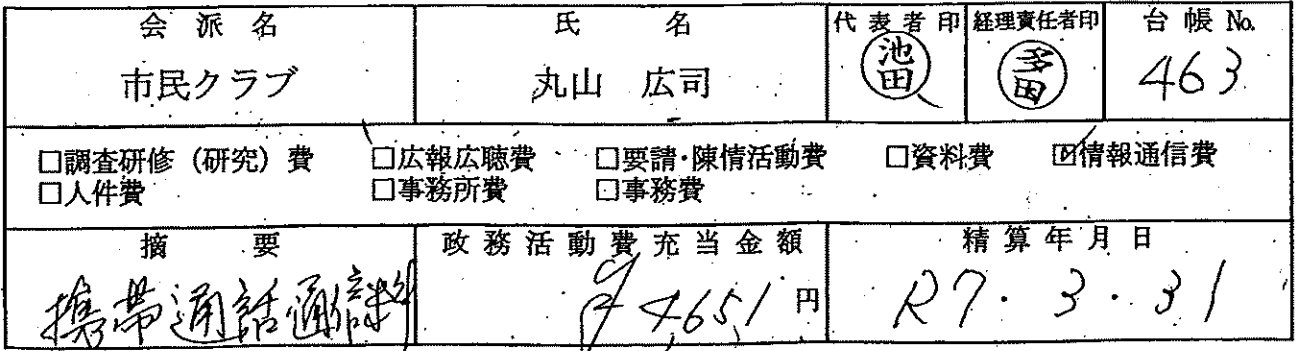 会派名 氏名 代表者印 経理責任者印 台帳No.
市民クラブ 丸山 広司 池田 多田 463
□調査研修（研究）費 □広報広聴費 □要請・陳情活動費 □資料費 ☑情報通信費
□人件費 □事務所費 □事務費
摘要 政務活動費充当金額 精算年月日
携帯通話通信料 ¥4,651円 R7.3.31